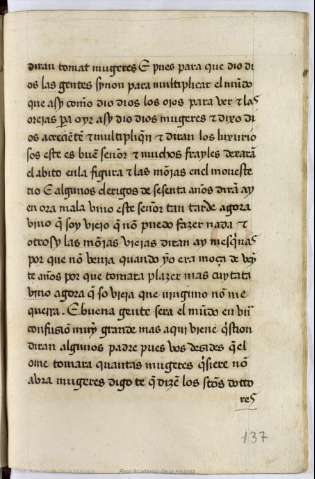 diran tomat mugeres E pues para que dio di
os las gentes synon para multiplicar el mūdo
que asy como dio dios los ojos para ver τ las
orejas pa oyr asy dio dios mugeres τ dixo di
os acrecẽte τ multipliq̃n τ diran los luxurio
sos este es buẽ señor τ muchos frayles dexarã
el abito en la figura τ las mõjas en el moneste
rio E algunos clerigos de sesenta años dirã ay
en ora mala vino este señor tan tarde agora
vino q̃ soy viejo q̃ nõ puedo fazer nada τ
otrosy las mõjas viejas diran ay mesq̃nas
por que nõ venia quando yo era moça de veỹ
te años por que tomara plazer mas cuytata
vino agora q̃ so vieja que ninguno nõ me
querra . E buena gente sera el mũdo en bu
confusiõn muy grande mas aqui viene q̃stion
diran algunos padre pues vos desides q̃ el
ome tomara quantas mugeres q̃siere nõ
abra mugeres digo te q̃ dizẽ los sc̃tos dotto
res
137